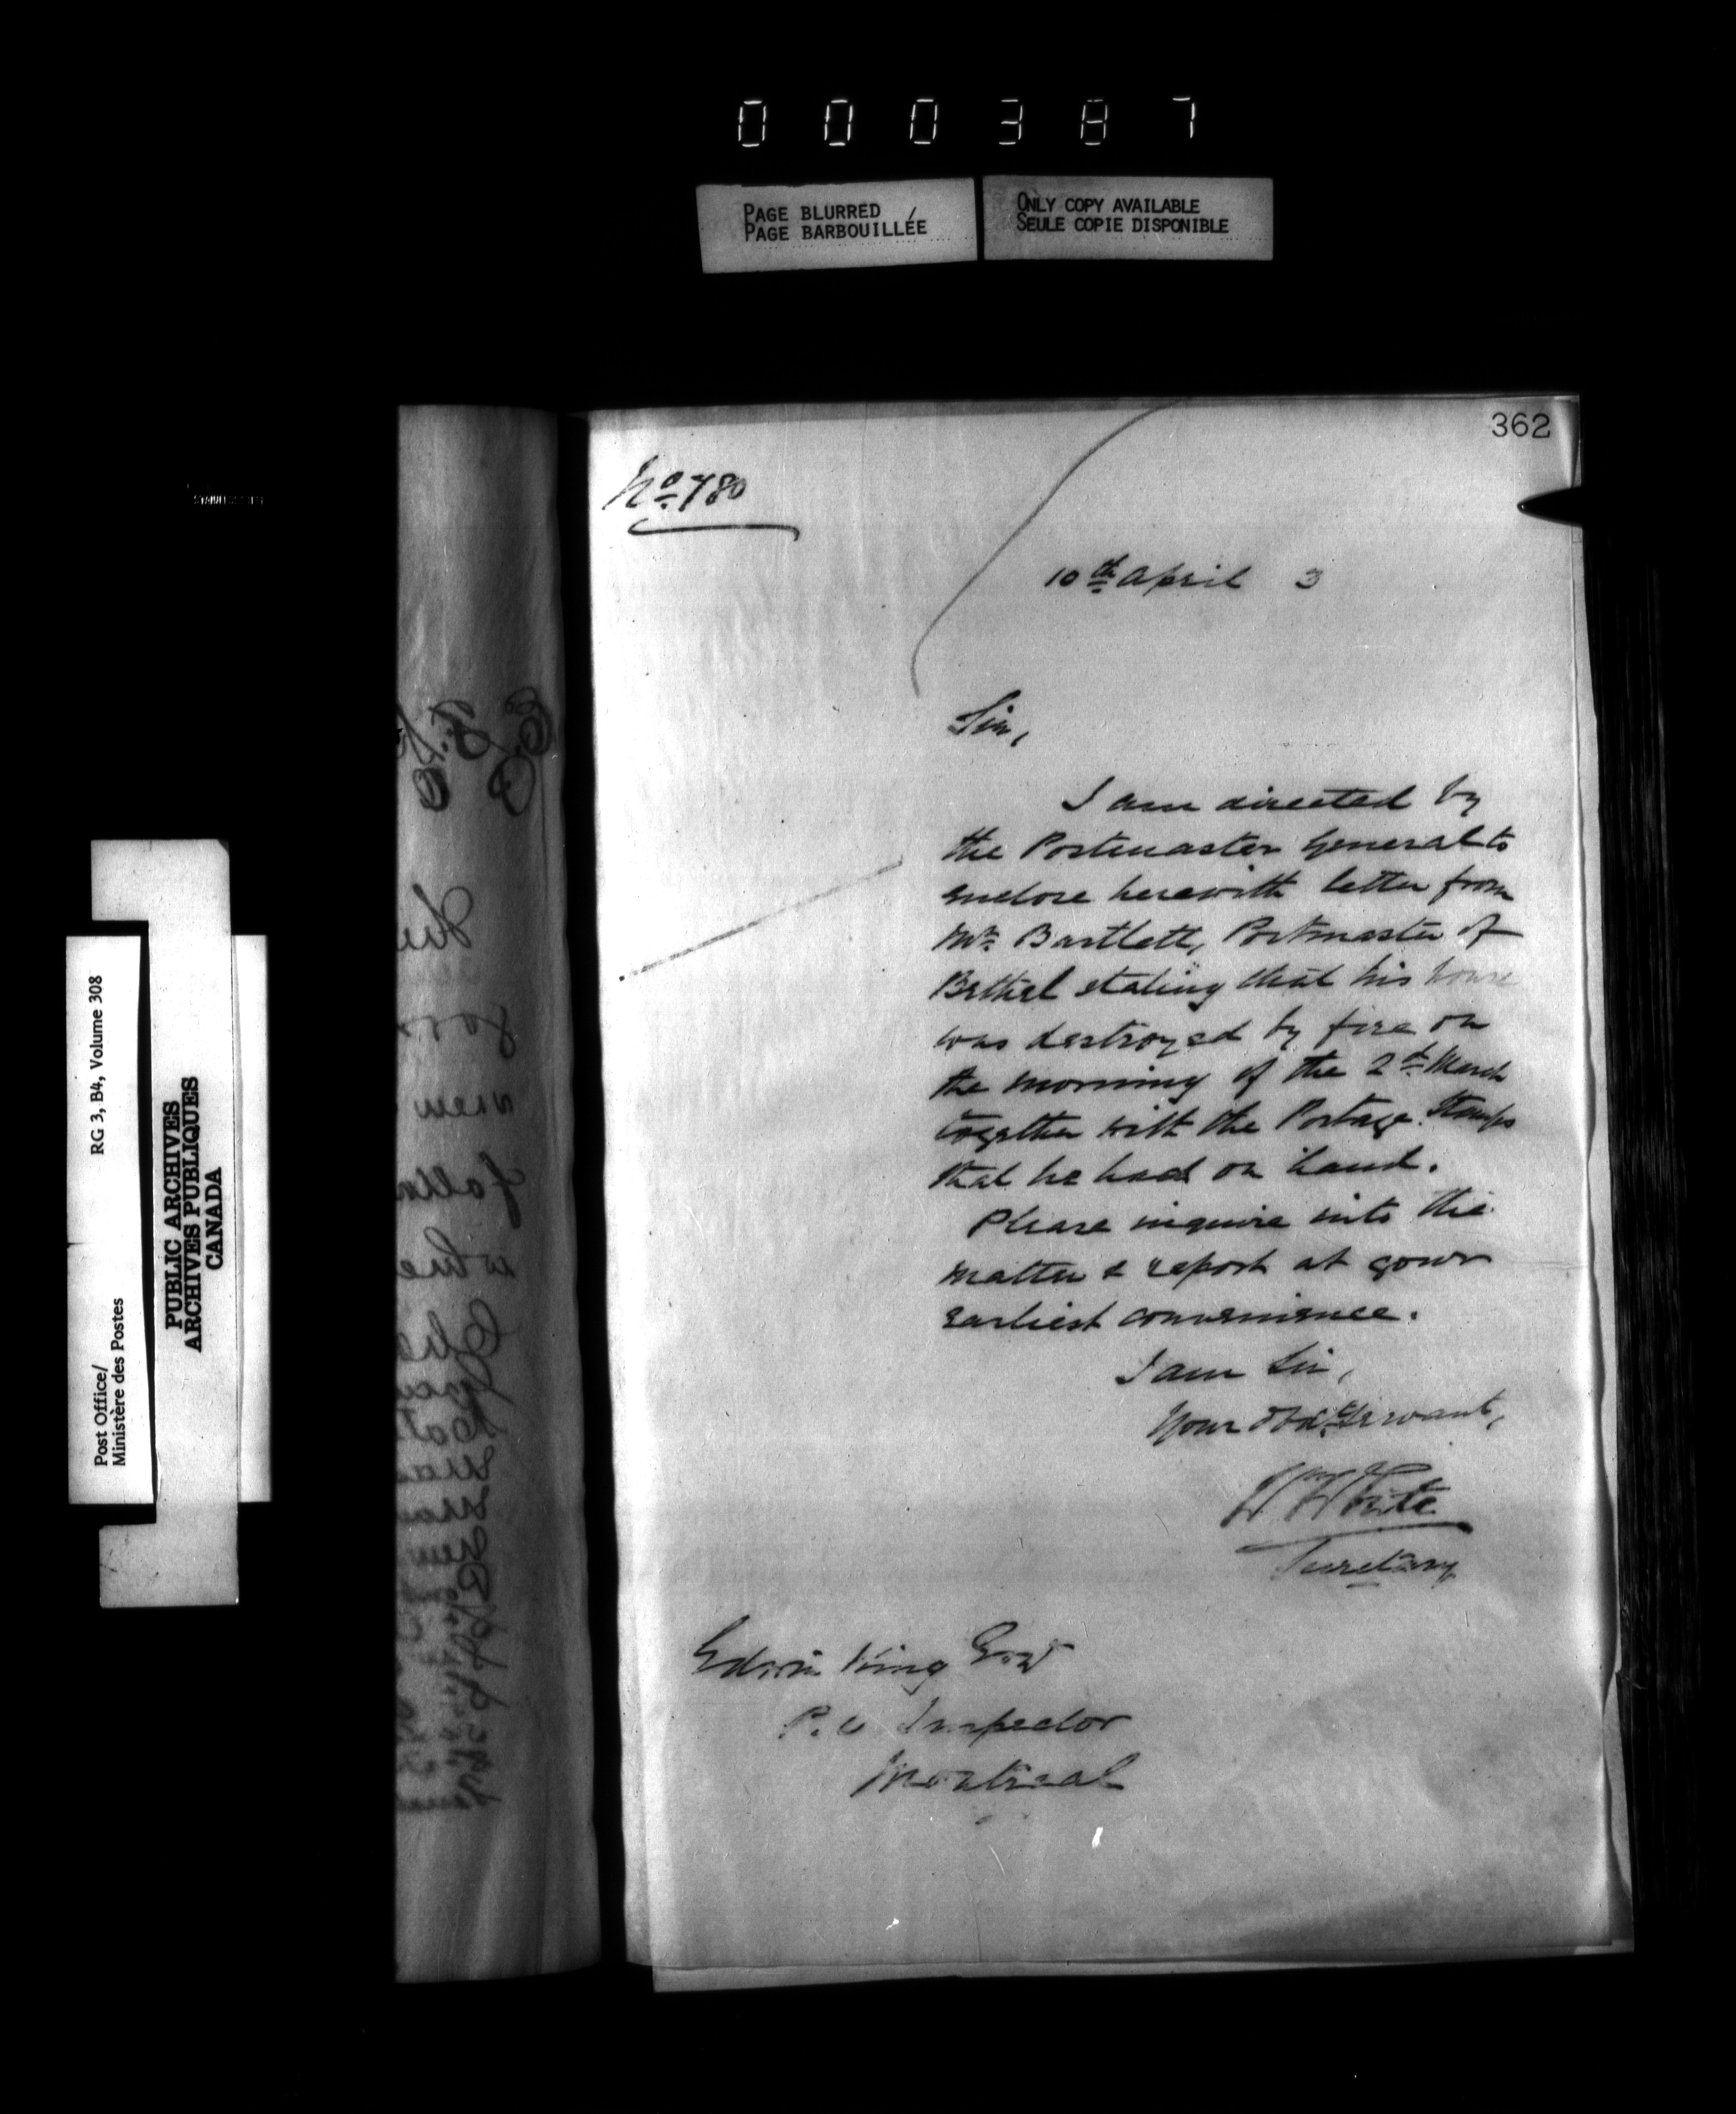 000387
PAGE BLURRED
PAGE BARBOUILLÉE
ONLY COPY AVAILABLE
SEULE COPIE DISPONIBLE
362
No. 780
10th April 3
Sir,
I am directed by
the Postmaster General to
enclose herewith letter from
Mr. Bartlett, Postmaster of
Bethel stating that his house
was destroyed by fire on
the morning of the 2d March
together with the Postage Stamps
that he had on hand.
Please inquire into the
matter & report at your
earliest convenience.
I am Sir,
Your Obdt. Servant,
Wm White
Secretary
Edwin King Esqr
P.O Inspector
Montreal
RG 3, B4, Volume 308
Post Office/
Ministère des Postes
PUBLIC ARCHIVES
ARCHIVES PUBLIQUES
CANADA